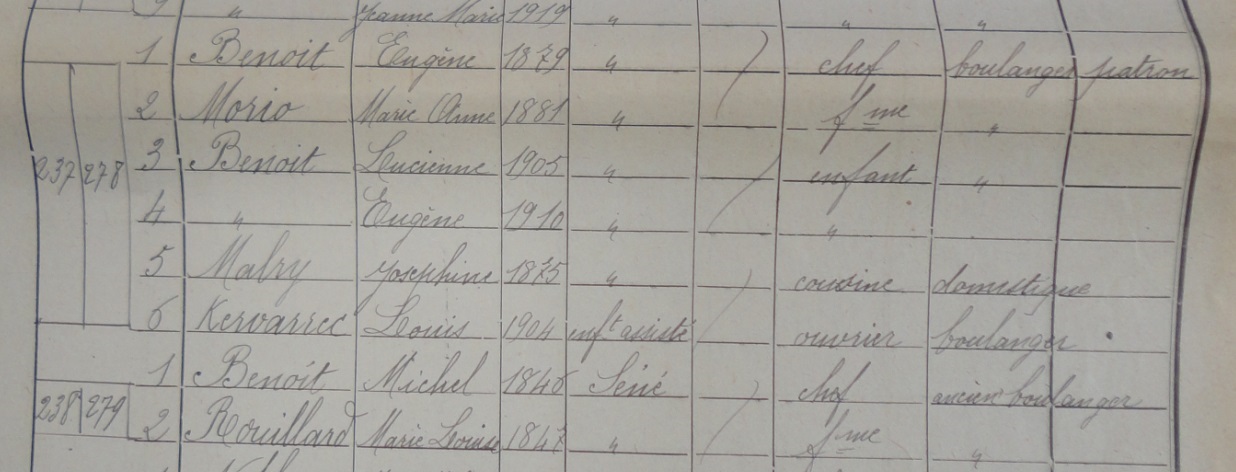 " Jeanne Marie 1919 " " "
1 Benoit Eugène 1879 " chef boulanger patron
2 Morio Marie Anne 1881 " fme "
237 278 3 Benoit Lucienne 1905 " enfant "
4 " Eugène 1910 " "
5 Malry Josephine 1875 " cousine domestique
6 Kervarrec Louis 1904 enft assisté ouvrier boulanger
1 Benoit Michel 1846 Séné chef ancien boulanger
238 279 2 Rouillard Marie Louise 1847 " fme "